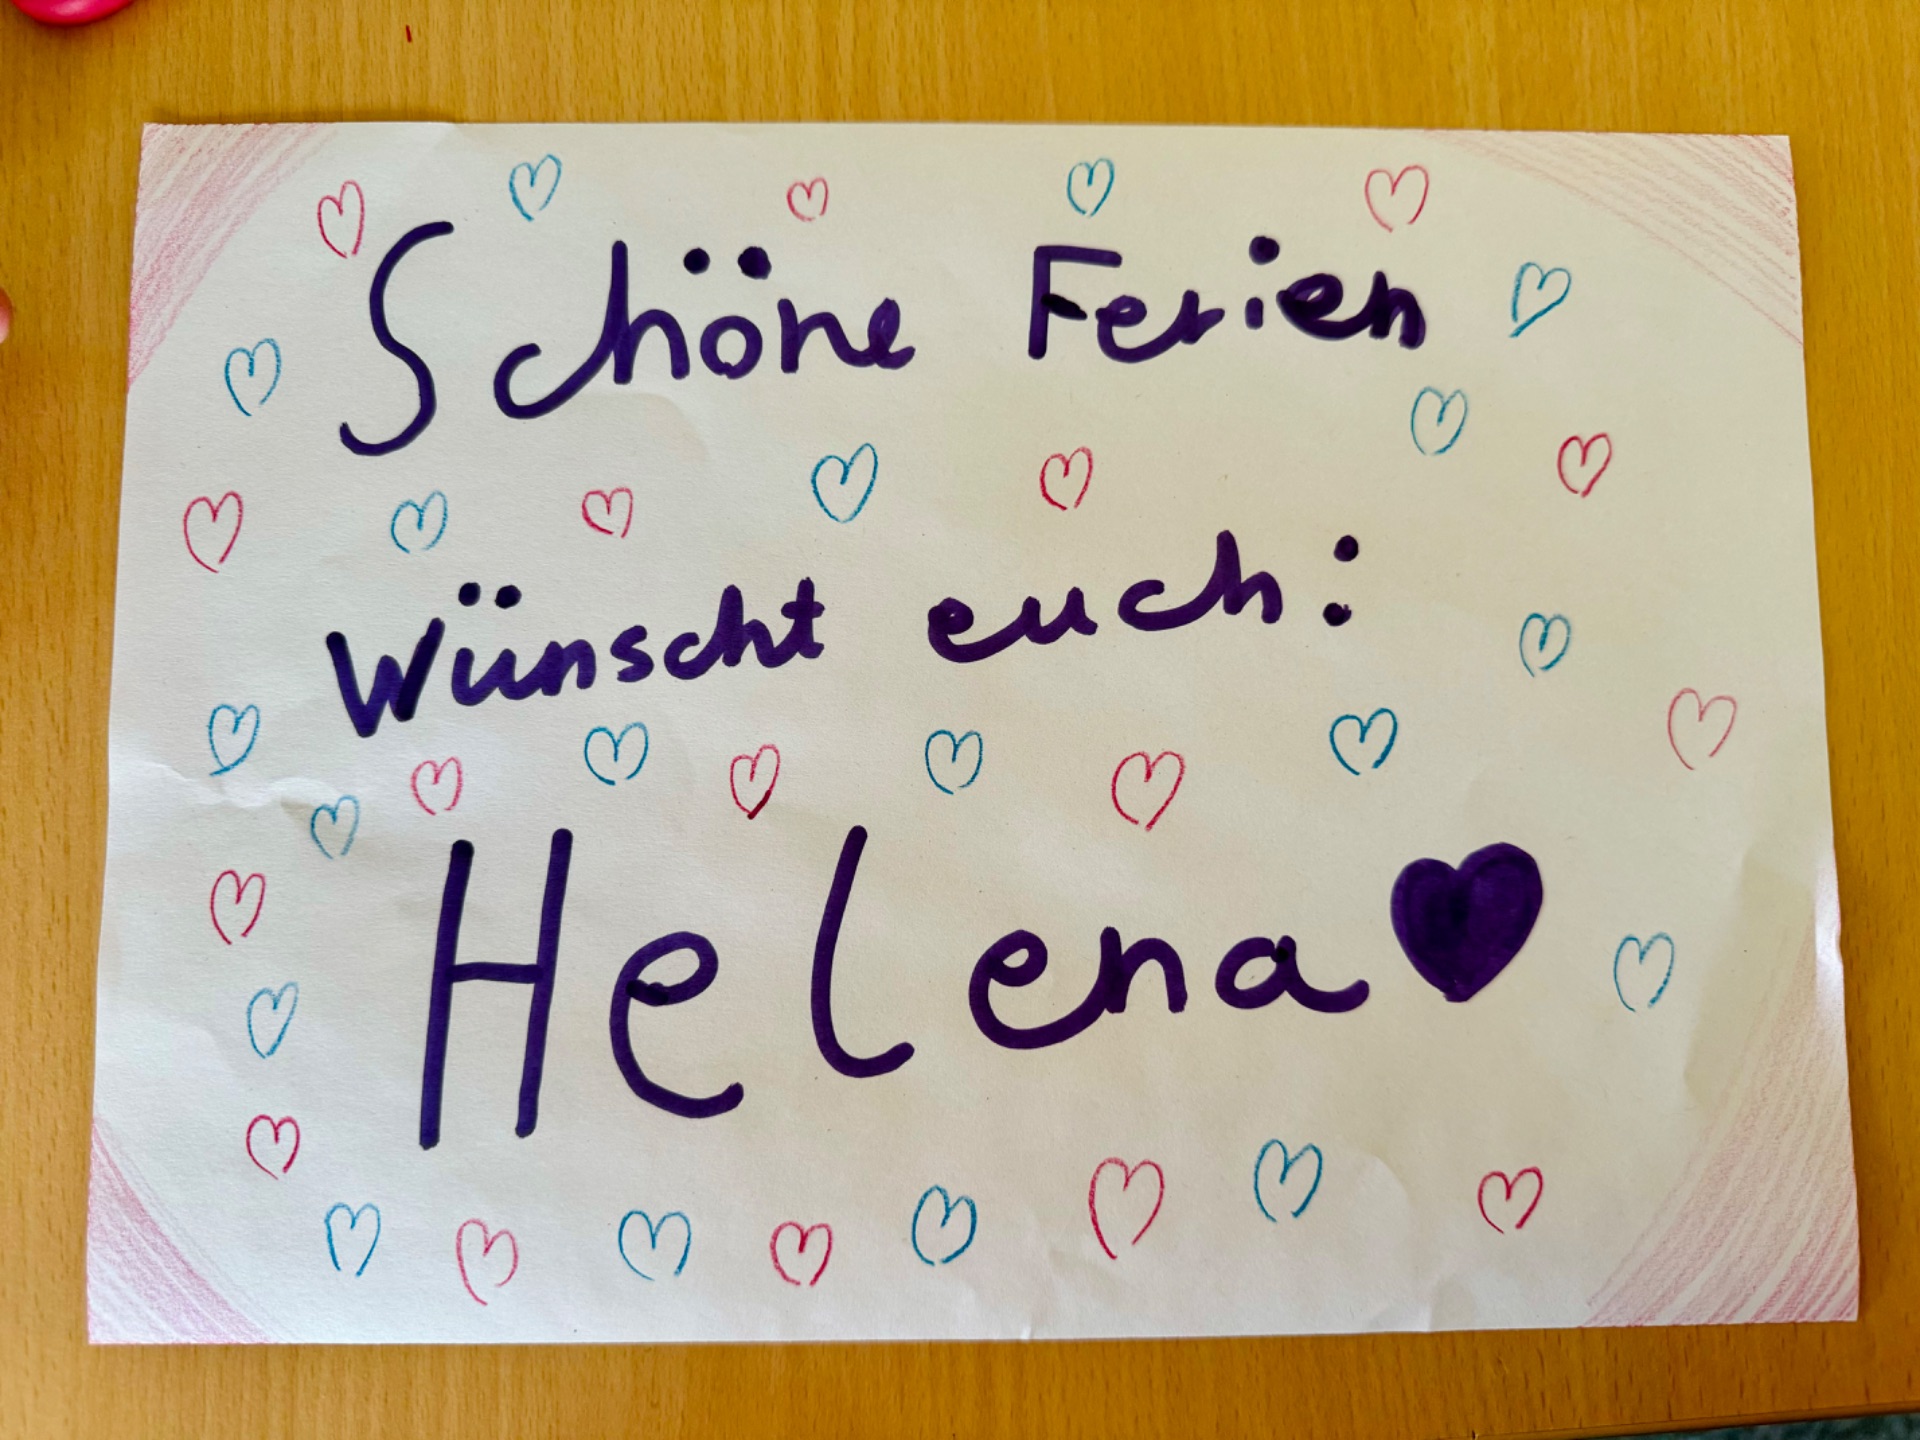 Schöne Ferien
wünscht euch:
Helena